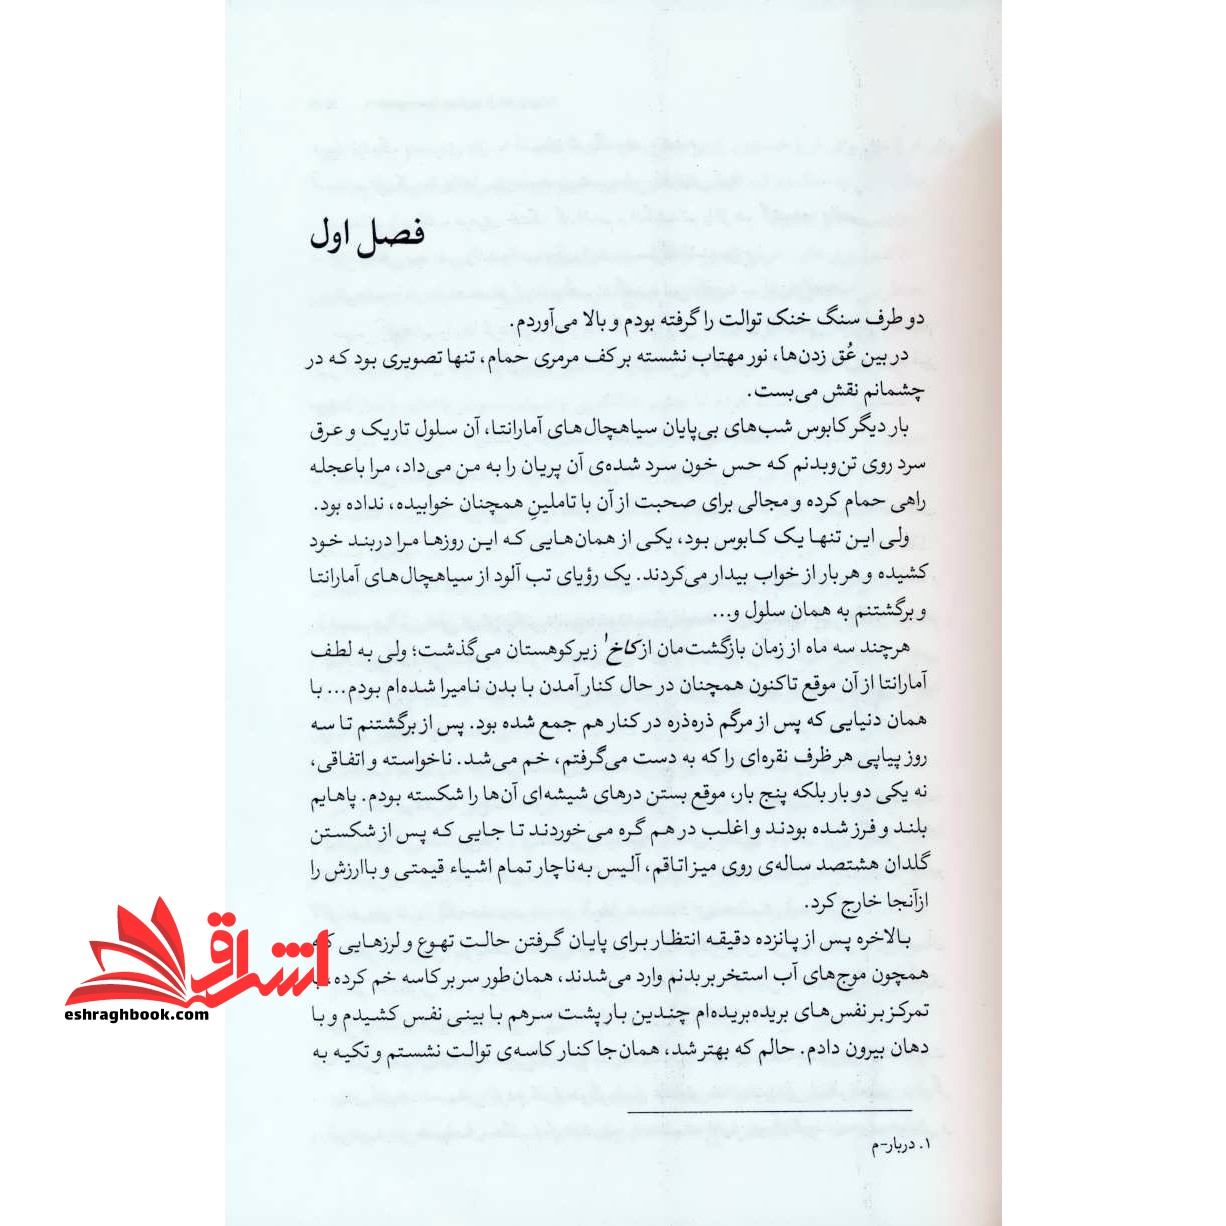 فصل اول
دو طرف سنگ خنک توالت را گرفته بودم و بالا می‌آوردم.
در بین عُق زدن‌ها، نور مهتاب نشسته بر کف مرمری حمام، تنها تصویری بود که در
چشمانم نقش می‌بست.
بار دیگر کابوس شب‌های بی‌پایان سیاهچال‌های آمارانتا، آن سلول تاریک و عرق
سرد روی تن‌وبدنم که حس خون سرد شده‌ی آن پریان را به من می‌داد، مرا باعجله
راهی حمام کرده و مجالی برای صحبت از آن با تاملینِ همچنان خوابیده، نداده بود.
ولی این تنها یک کابوس بود، یکی از همان‌هایی که این روزها مرا دربند خود
کشیده و هربار از خواب بیدار می‌کردند. یک رؤیای تب آلود از سیاهچال‌های آمارانتا
و برگشتنم به همان سلول و...
هرچند سه ماه از زمان بازگشت‌مان از کاخ۱ زیر کوهستان می‌گذشت؛ ولی به لطف
آمارانتا از آن موقع تاکنون همچنان در حال کنار آمدن با بدن نامیرا شده‌ام بودم... با
همان دنیایی که پس از مرگم ذره‌ذره در کنار هم جمع شده بود. پس از برگشتنم تا سه
روز پیاپی هر ظرف نقره‌ای را که به دست می‌گرفتم، خم می‌شد. ناخواسته و اتفاقی،
نه یکی دو بار بلکه پنج بار، موقع بستن درهای شیشه‌ای آن‌ها را شکسته بودم. پاهایم
بلند و فرز شده بودند و اغلب در هم گره می‌خوردند تا جایی که پس از شکستن
گلدان هشتصد ساله‌ی روی میز اتاقم، آلیس به‌ناچار تمام اشیاء قیمتی و باارزش را
ازآنجا خارج کرد.
بالاخره پس از پانزده دقیقه انتظار برای پایان گرفتن حالت تهوع و لرزهایی که
همچون موج‌های آب استخر بر بدنم وارد می‌شدند، همان‌طور سر بر کاسه خم کرده، با
تمرکز بر نفس‌های بریده‌بریده‌ام چندین بار پشت سرهم با بینی نفس کشیدم و با
دهان بیرون دادم. حالم که بهتر شد، همان‌جا کنار کاسه‌ی توالت نشستم و تکیه به
۱. دربار-م
اشراق
eshraghbook.com